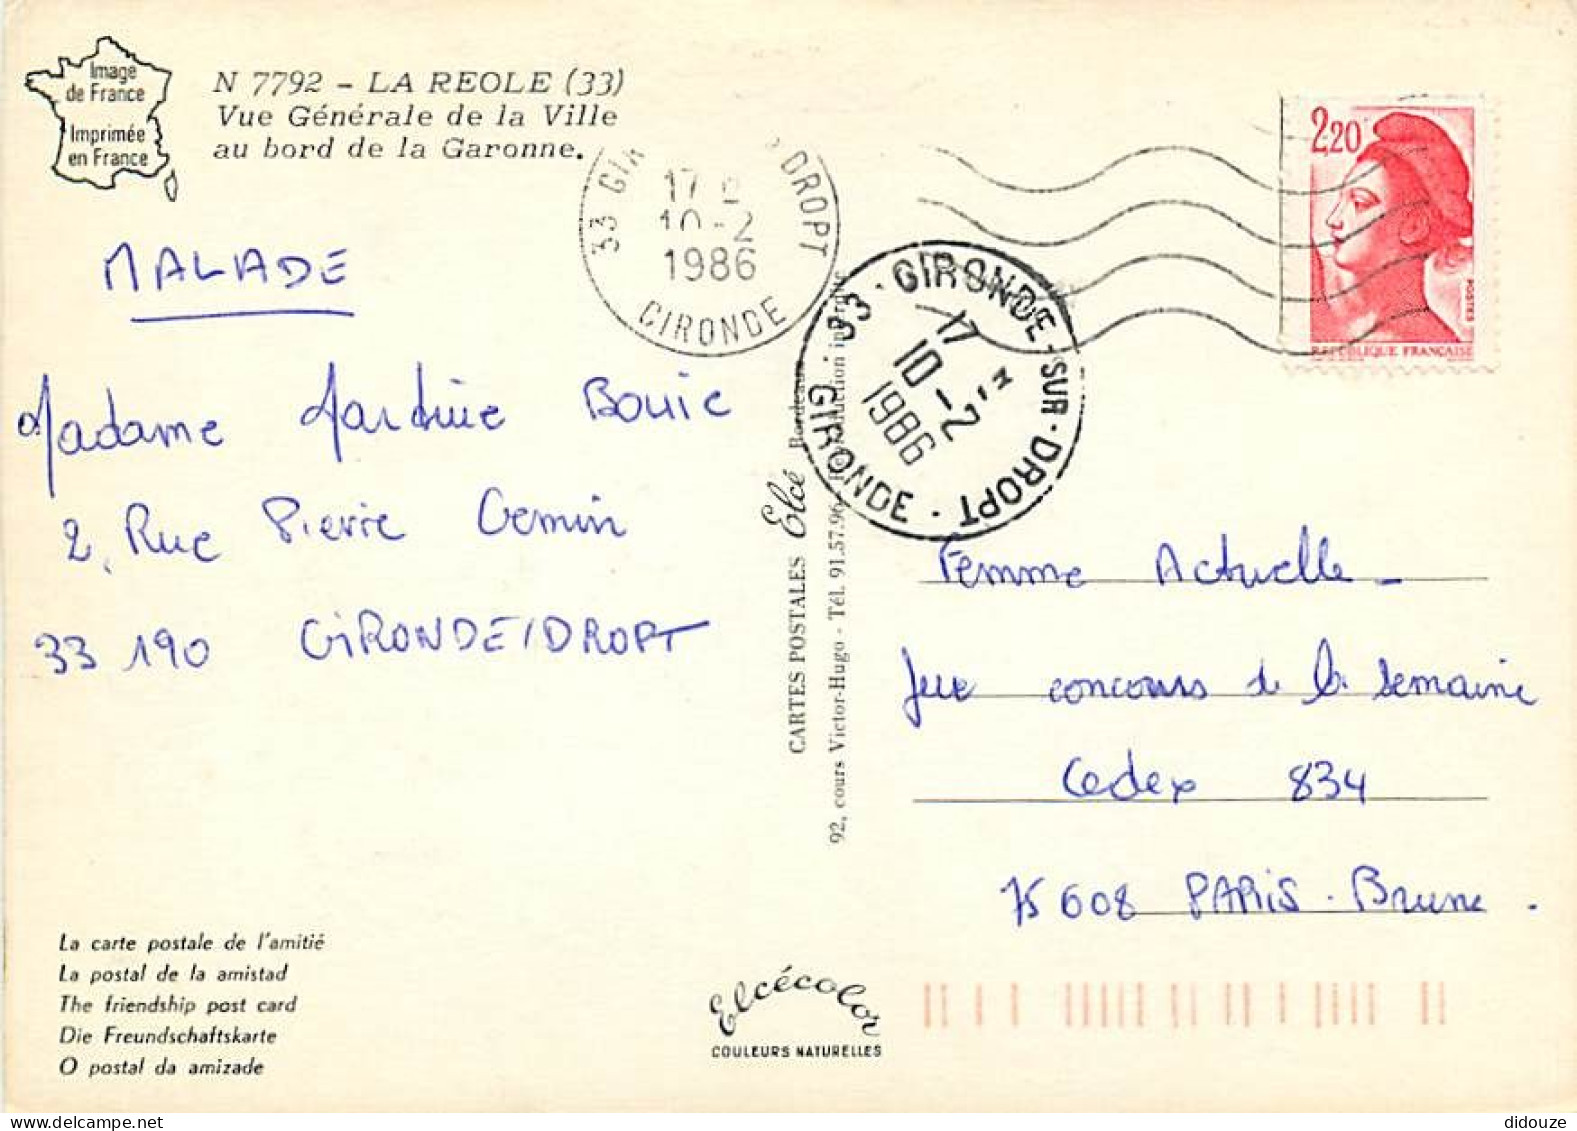 Image
de France
Imprimée
en France
N 7792 - LA REOLE (33)
Vue Générale de la Ville
au bord de la Garonne.
MALADE
Madame Martine Bouic
2, Rue Pierre Gemin
33 190 GIRONDE/DROPT
33 GIR DROPT
17
10-2
1986
GIRONDE
33 · GIRONDE-SUR-DROPT · GIRONDE
17 H
10-2
1986
2,20
POSTES
REPUBLIQUE FRANÇAISE
CARTES POSTALES Elcé Bordeaux
92, cours Victor-Hugo - Tél. 91.57.96
Femme Actuelle -
Jeu concours de la Semaine
Cedex 834
75 608 PARIS . Brune .
La carte postale de l'amitié
La postal de la amistad
The friendship post card
Die Freundschaftskarte
O postal da amizade
Elcécolor
COULEURS NATURELLES
didouze